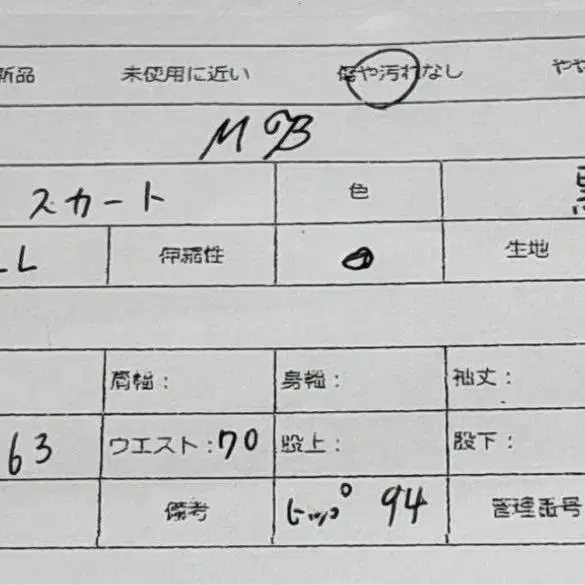 新品 未使用に近い 傷や汚れなし やや
MB
スカート 色 黒
LL 伸縮性 生地
肩幅: 身幅: 袖丈:
63 ウエスト:70 股上: 股下:
備考 ヒップ 94 管理番号